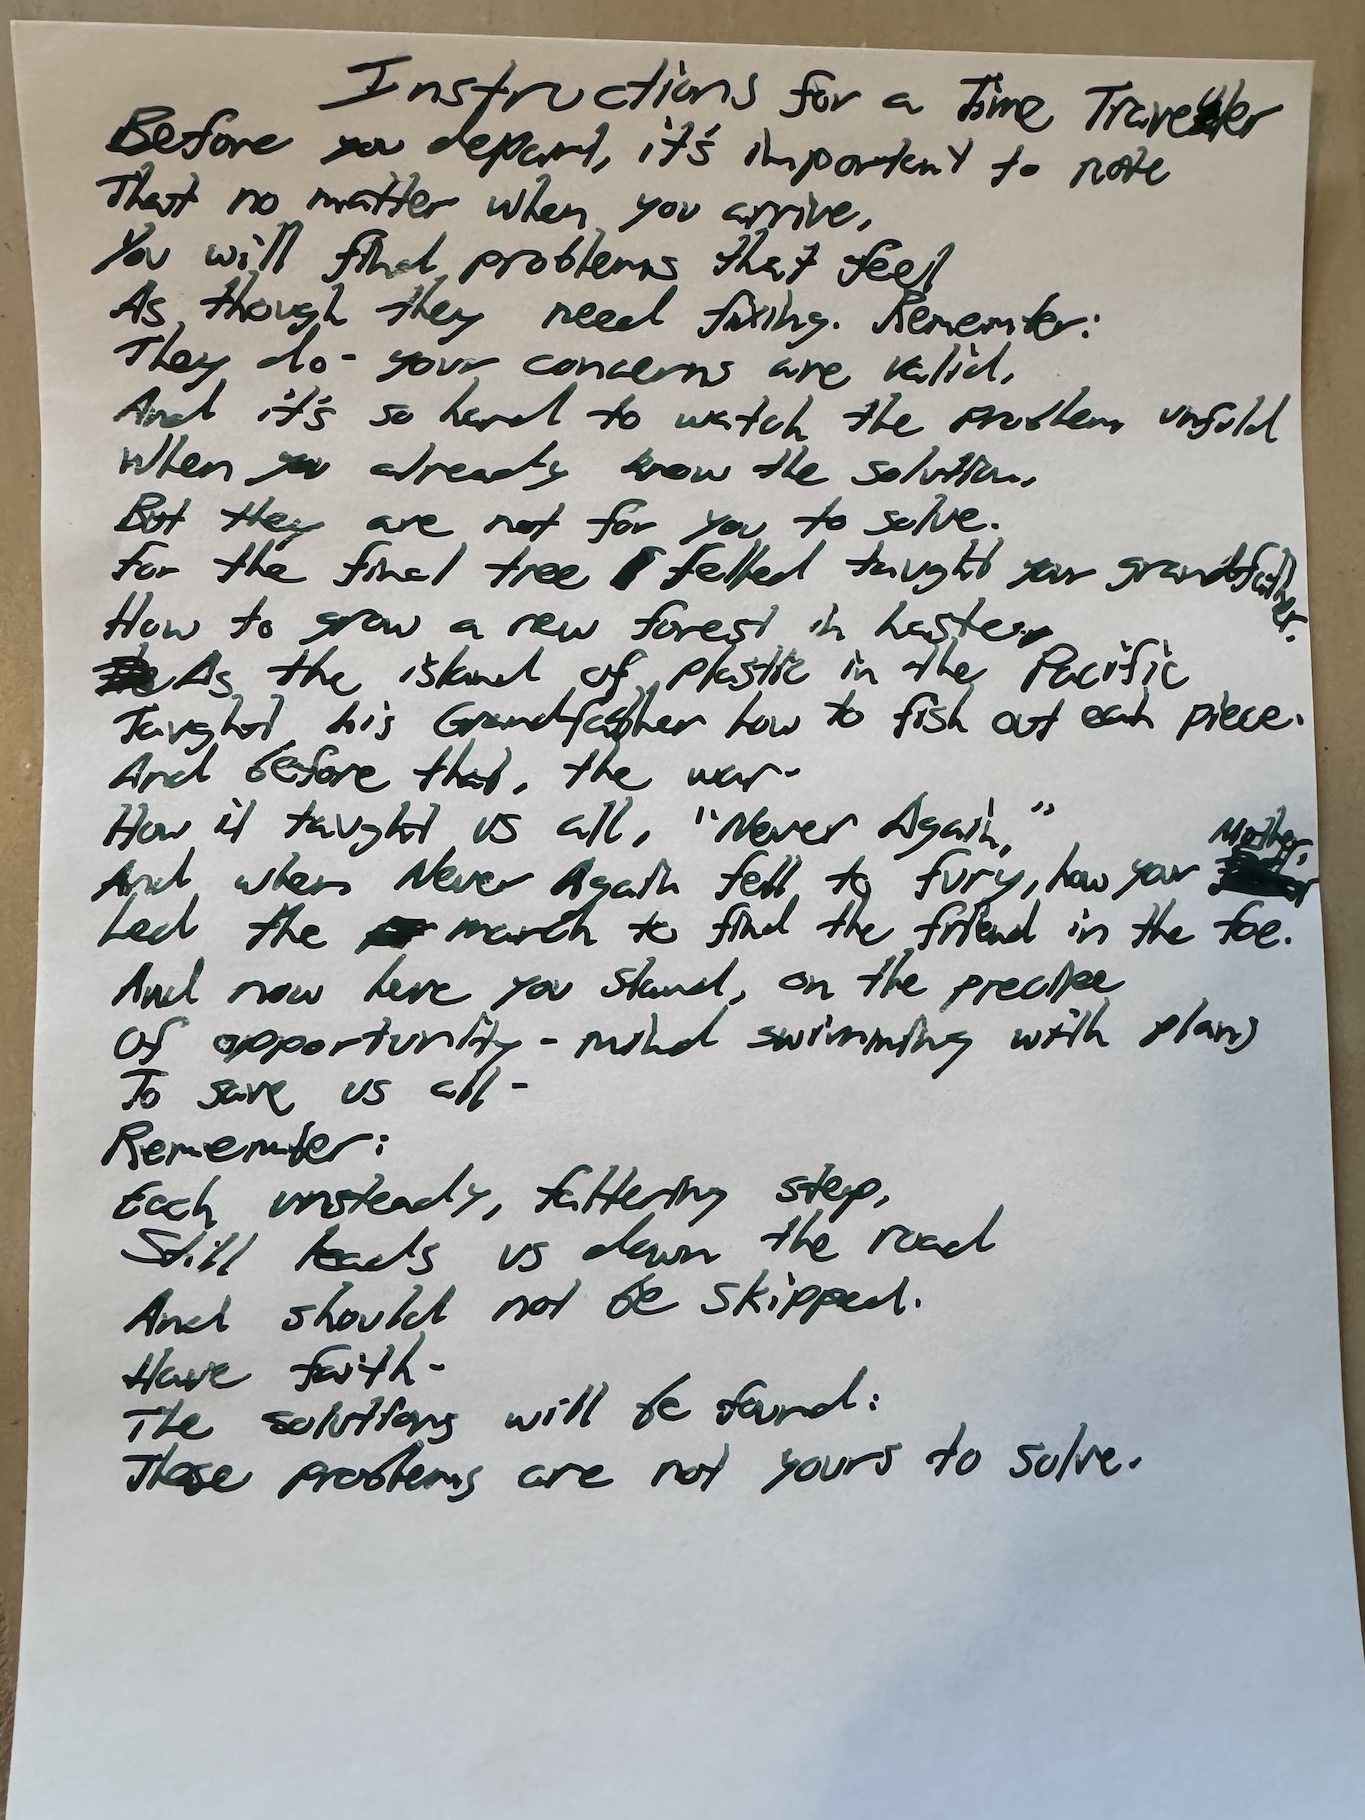 Instructions for a Time Traveller
Before you depart, it's important to note
That no matter when you arrive,
You will find problems that feel
As though they need fixing. Remember:
They do - your concerns are valid,
And it's so hard to watch the problem unfold
When you already know the solution.
But they are not for you to solve.
For the final tree felled taught your grandfather.
How to grow a new forest in haste
As the island of plastic in the Pacific
Taught his Grandfather how to fish out each piece.
And before that, the war-
How it taught us all, "Never Again,"
And when Never Again fell to fury, how your Mother,
Led the march to find the friend in the foe.
And now here you stand, on the precipe
Of opportunity - mind swimming with plans
To save us all -
Remember:
Each unsteady, faltering step,
Still leads us down the road
And should not be skipped.
Have faith -
The solutions will be found:
These problems are not yours to solve.